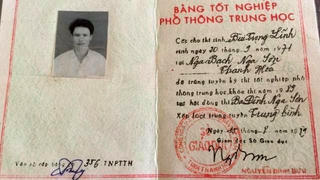 BẰNG TỐT NGHIỆP
PHỔ THÔNG TRUNG HỌC
Cấp cho thí sinh Bùi Trung Lĩnh
sinh ngày 20 tháng 9 năm 1971
tại Nga Bạch Nga Sơn
Thanh Hóa
đã trúng tuyển kỳ thi tốt nghiệp phổ
thông trung học, khóa thi năm 1989
tại hội đồng thi Ba Đình Nga Sơn
Xếp loại trúng tuyển Trung bình
Ngày tháng 8 năm 19
Giám đốc Sở Giáo dục
SỞ
GIÁO DỤC
Vào sổ cấp bằng
356 TNPTTH
NGUYỄN ĐÌNH BƯU